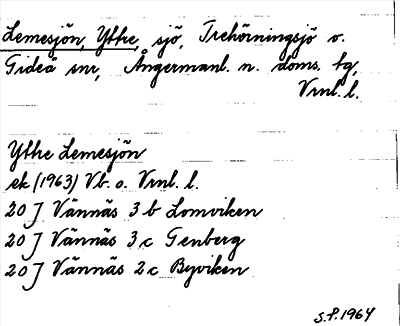 Lemesjön, Yttre, sjö, Trehörningsjö o.
Gideå snr, Ångermanl. n. doms. tg,
Vrnl. l.
Yttre Lemesjön
ek (1963) Vb. o. Vrnl. l.
20 J Vännäs 3 b Lomviken
20 J Vännäs 3 c Genberg
20 J Vännäs 2 c Byviken
S.P. 1964